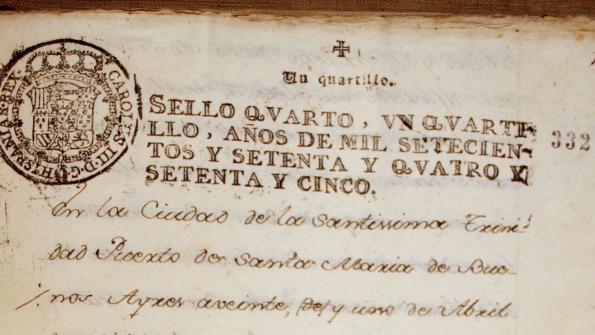 Un quartillo.
CAROLVS·III·D·G·HISPANIAR·REX·
SELLO QVARTO, VN QVARTI-
LLO, AÑOS DE MIL SETECIEN-
TOS Y SETENTA Y QVATRO Y
SETENTA Y CINCO.
332
En la Ciudad de la Santissima Trini
dad Puerto de Santa Maria de Bue-
nos Ayres aveinte, (de) y uno de Abril